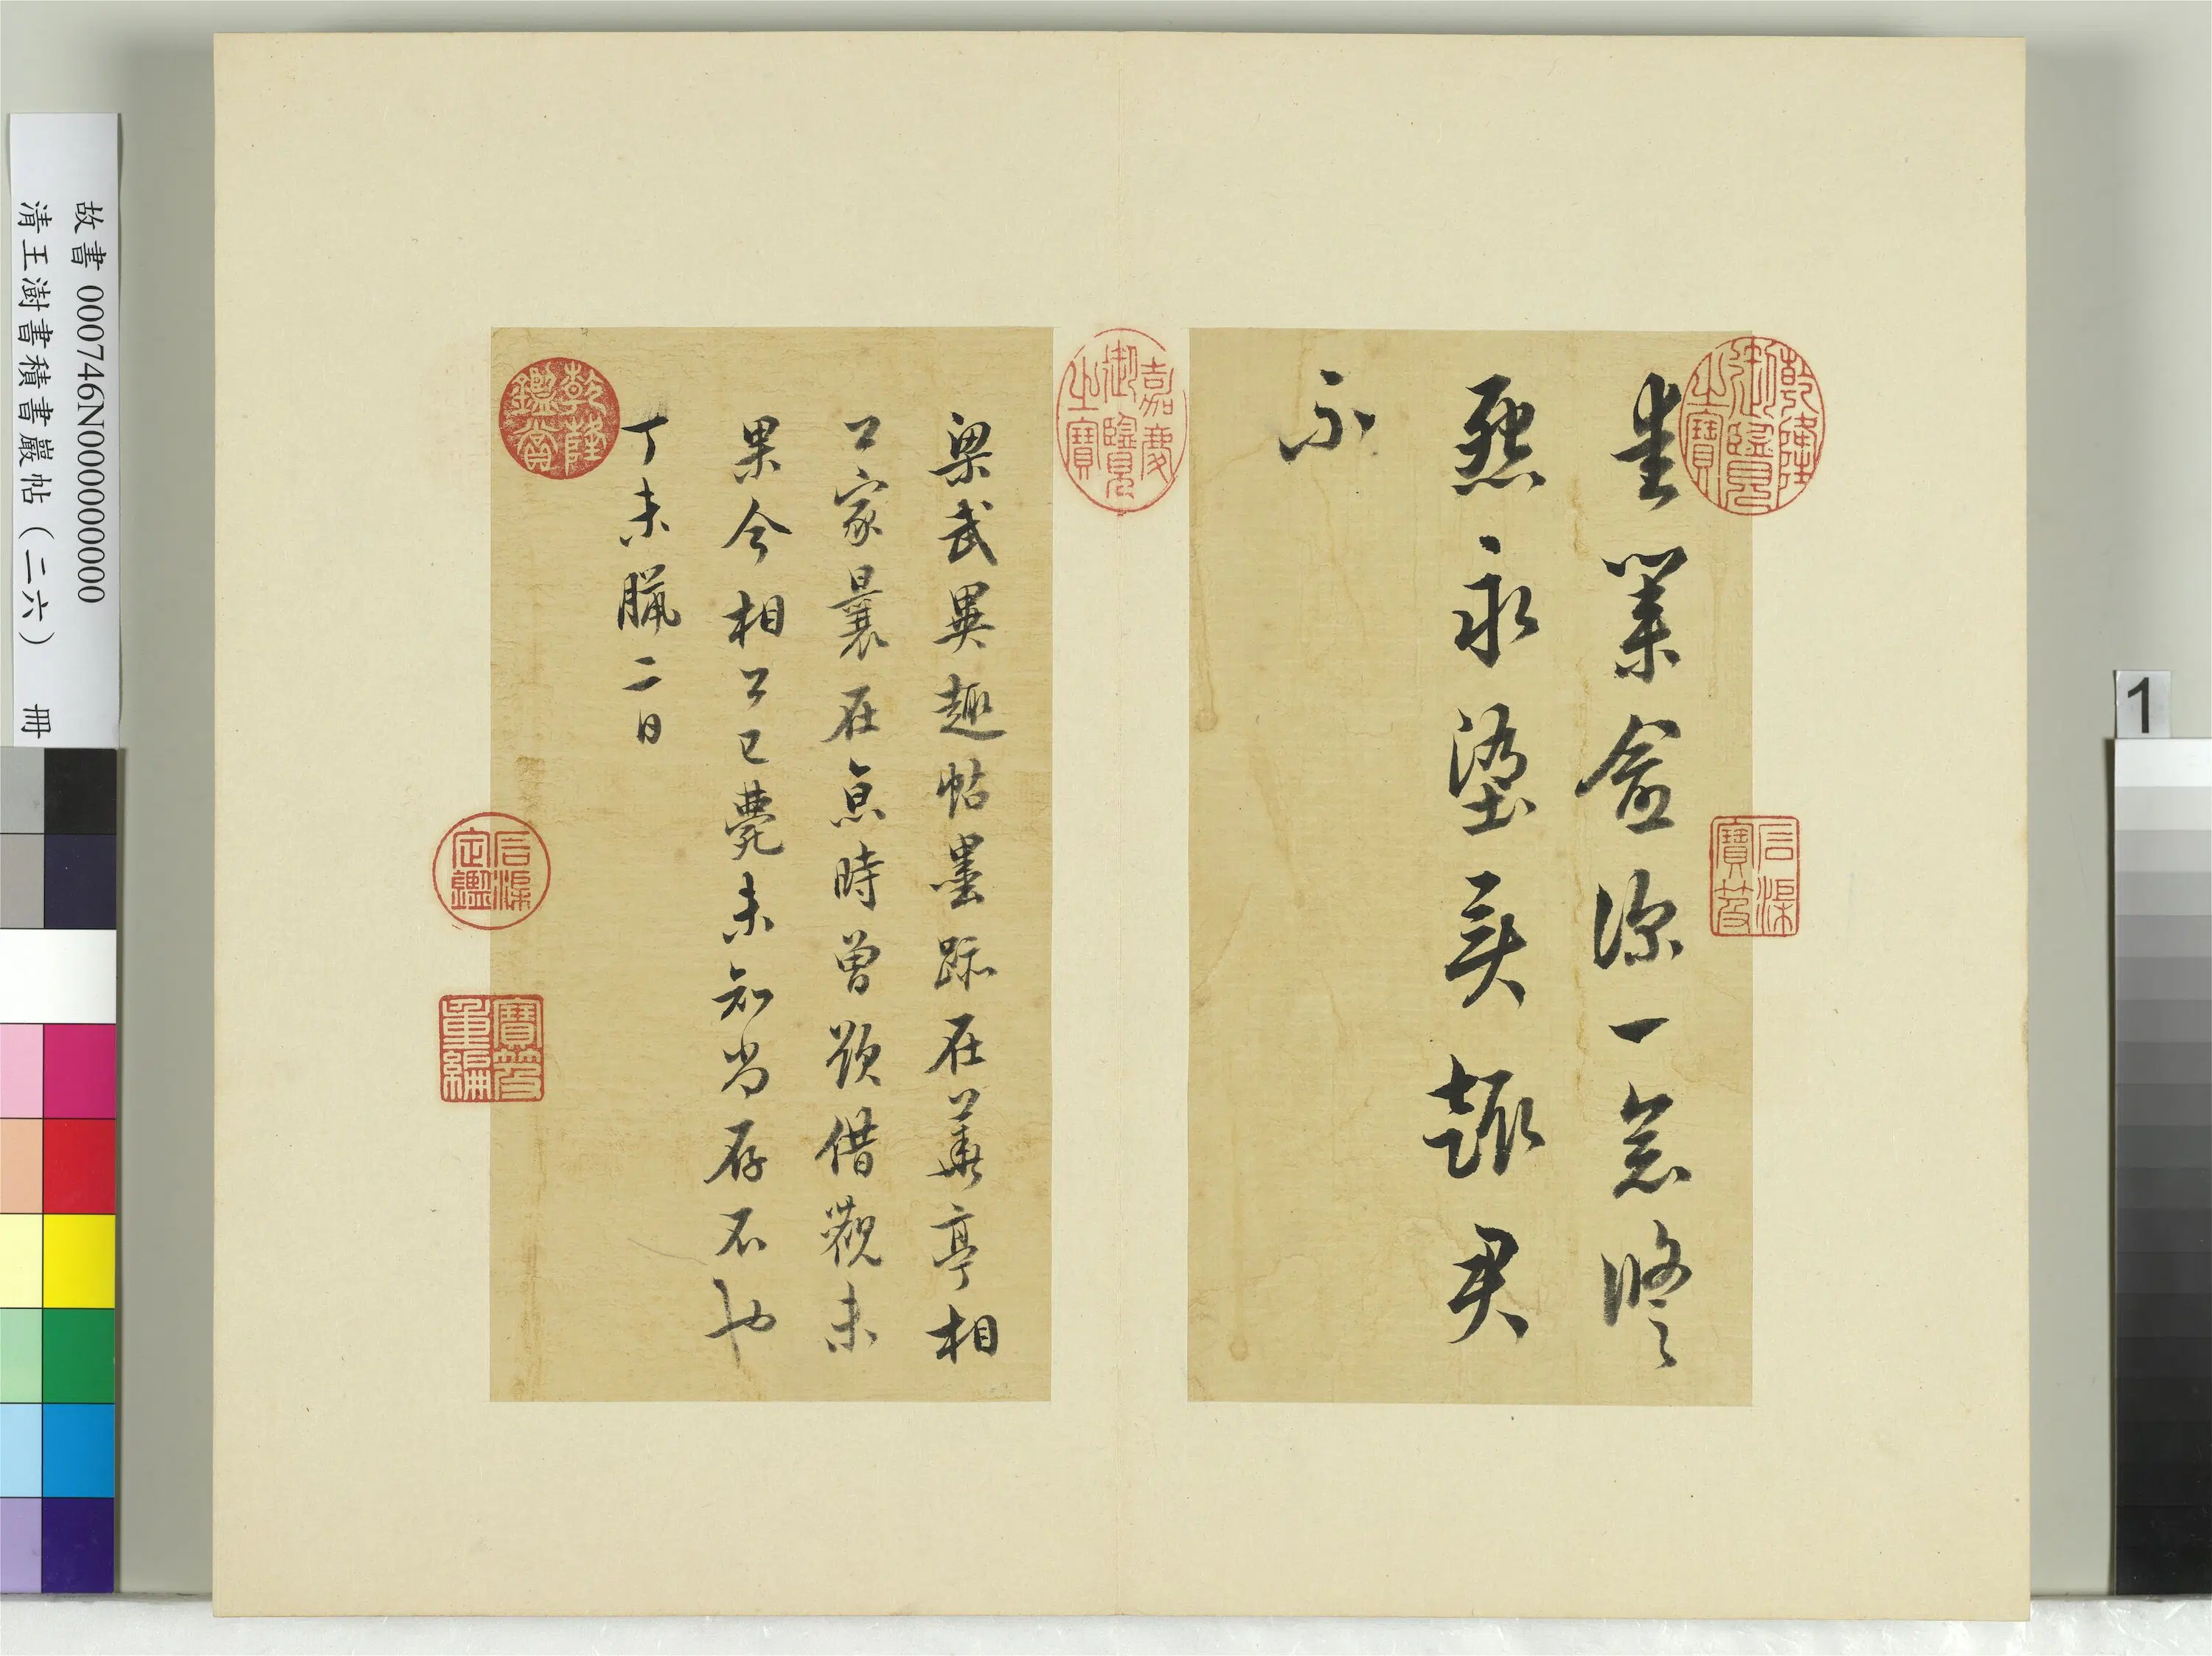 1
乾隆御覽之寶
石渠寶笈
愛業愈深一念脩
怨永墮異趣君
不
嘉慶御覽之寶
梁武異趣帖墨跡在華亭相
公家曩在京時曾欲借觀未
果今相公已薨未知尚存不也
丁未臘二日
乾隆鑑賞
石渠定鑑
寶笈重編
故書 000746N000000000
清王澍書積書巖帖（二六） 冊